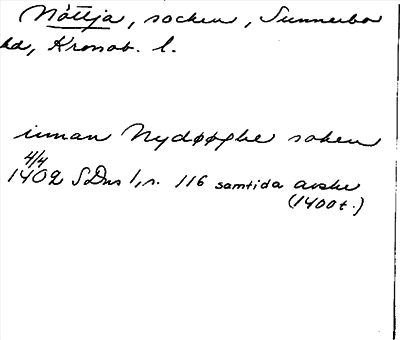 Nöttja, socken, Sunnerbo
hd, Kronob. l.
innan Nydøøghe soken
4/4
1402 SDns 1, s. 116 samtida avskr
(1400t.)